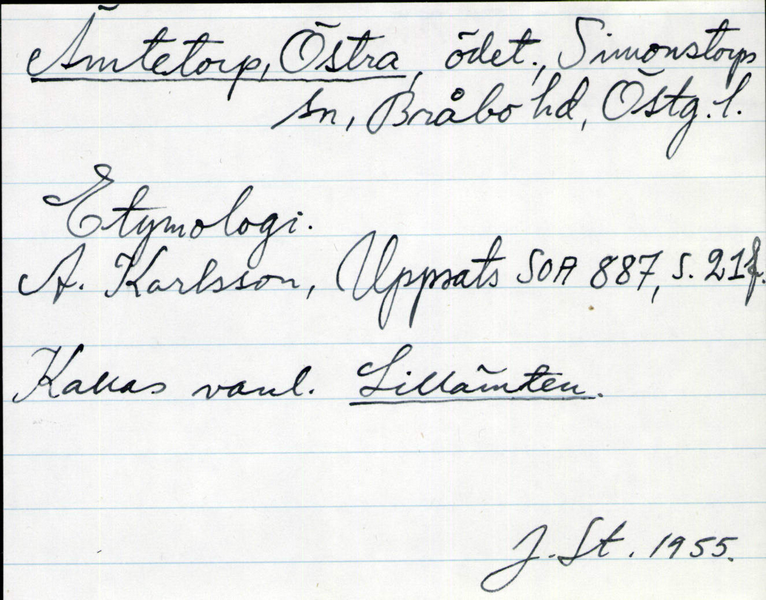 Ämtetorp, Östra, ödet., Simonstorps
sn, Bråbo hd, Östg. l.
Etymologi.
A. Karlsson, Uppsats SOA 887, s. 21f.
Kallas vanl. Lillämten.
J. St. 1955.